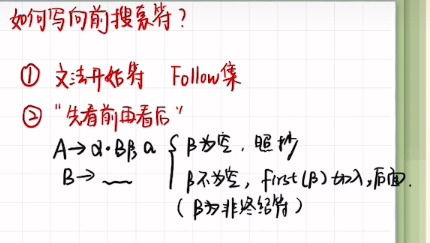 如何写向前搜索符?
① 文法开始符 Follow集
② "先看前再看后"
A→α·Bβ,a { β为空,照抄
B→ ﹏ β不为空,first(β)加入,后面.
(β为非终结符)